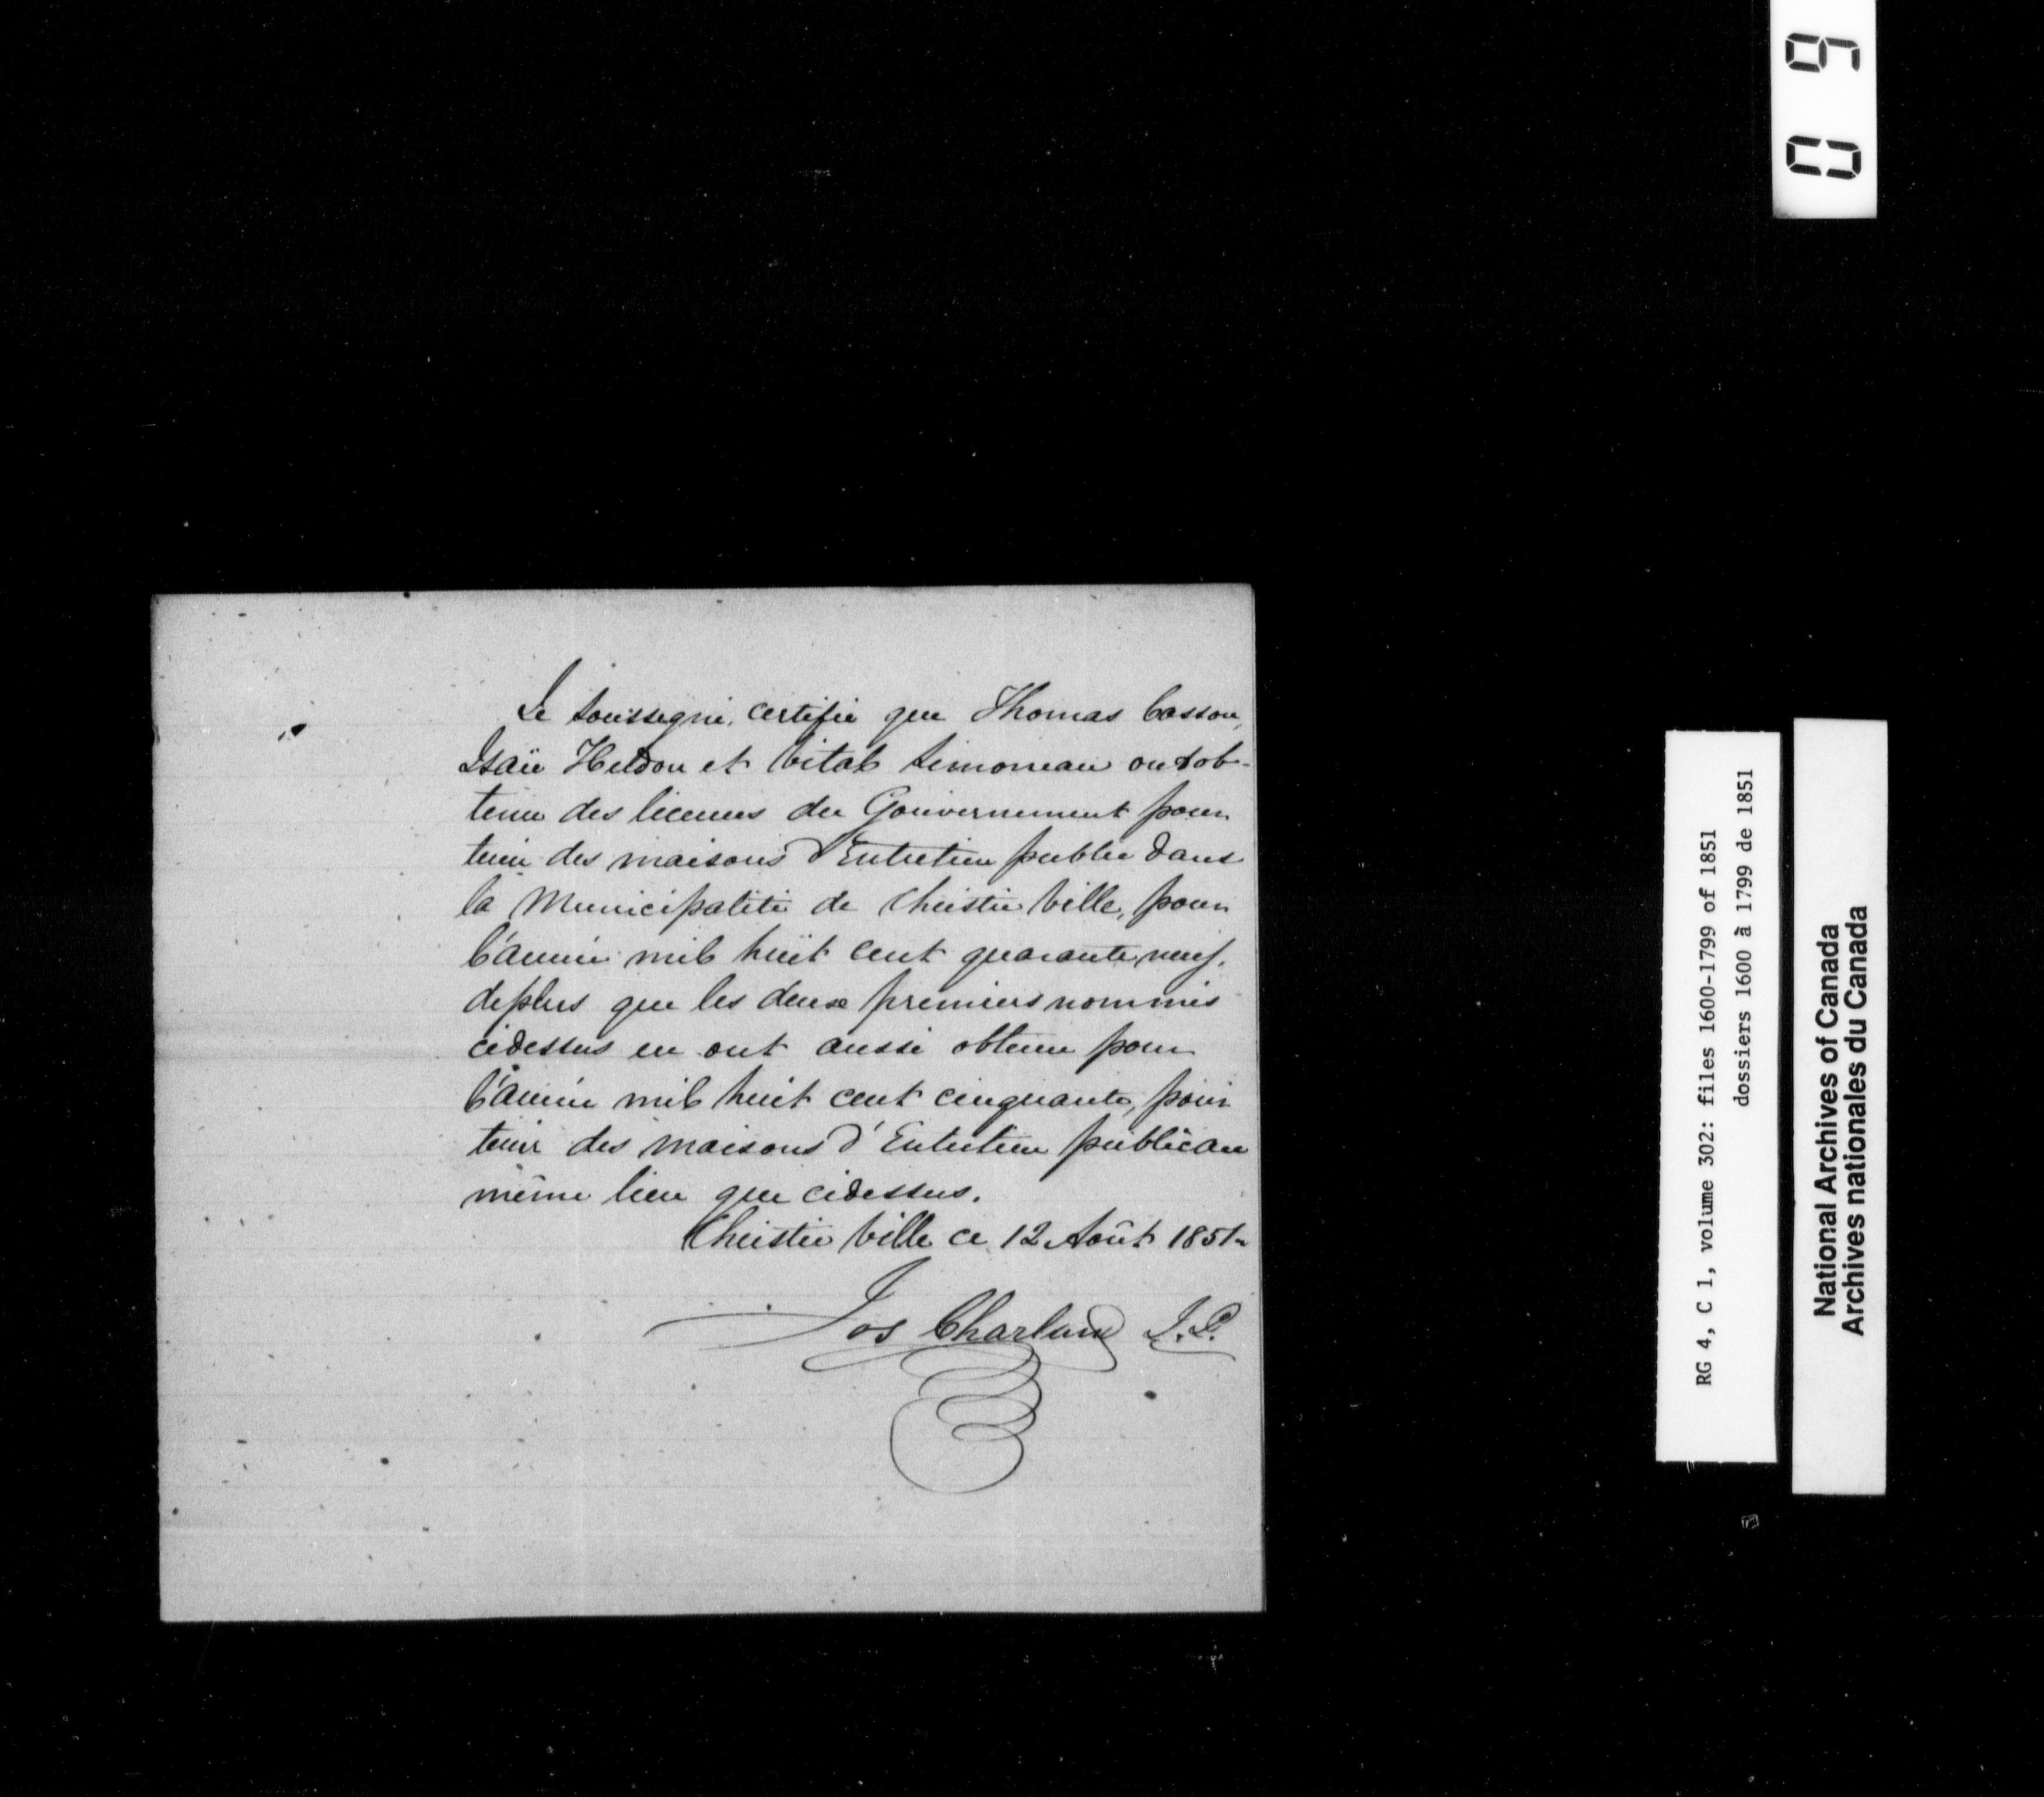 Le soussigné, certifie que Thomas Casson,
Isaïe Heldon et Vital Simoneau ont ob-
tenu des licences du Gouvernement pour
tenir des maisons d'Entretien public dans
la Municipalité de Christie Ville, pour
l'année mil huit cent quarante neuf.
deplus que les deux premiers nommés
cidessus en ont aussi obtenu pour
l'année mil huit cent cinquante, pour
tenir des maisons d'Entretien public au
même lieu que cidessus.
Christie Ville ce 12 Août 1851
Jos Charland J.P.
09
RG 4, C 1, volume 302: files 1600-1799 of 1851
dossiers 1600 à 1799 de 1851
National Archives of Canada
Archives nationales du Canada